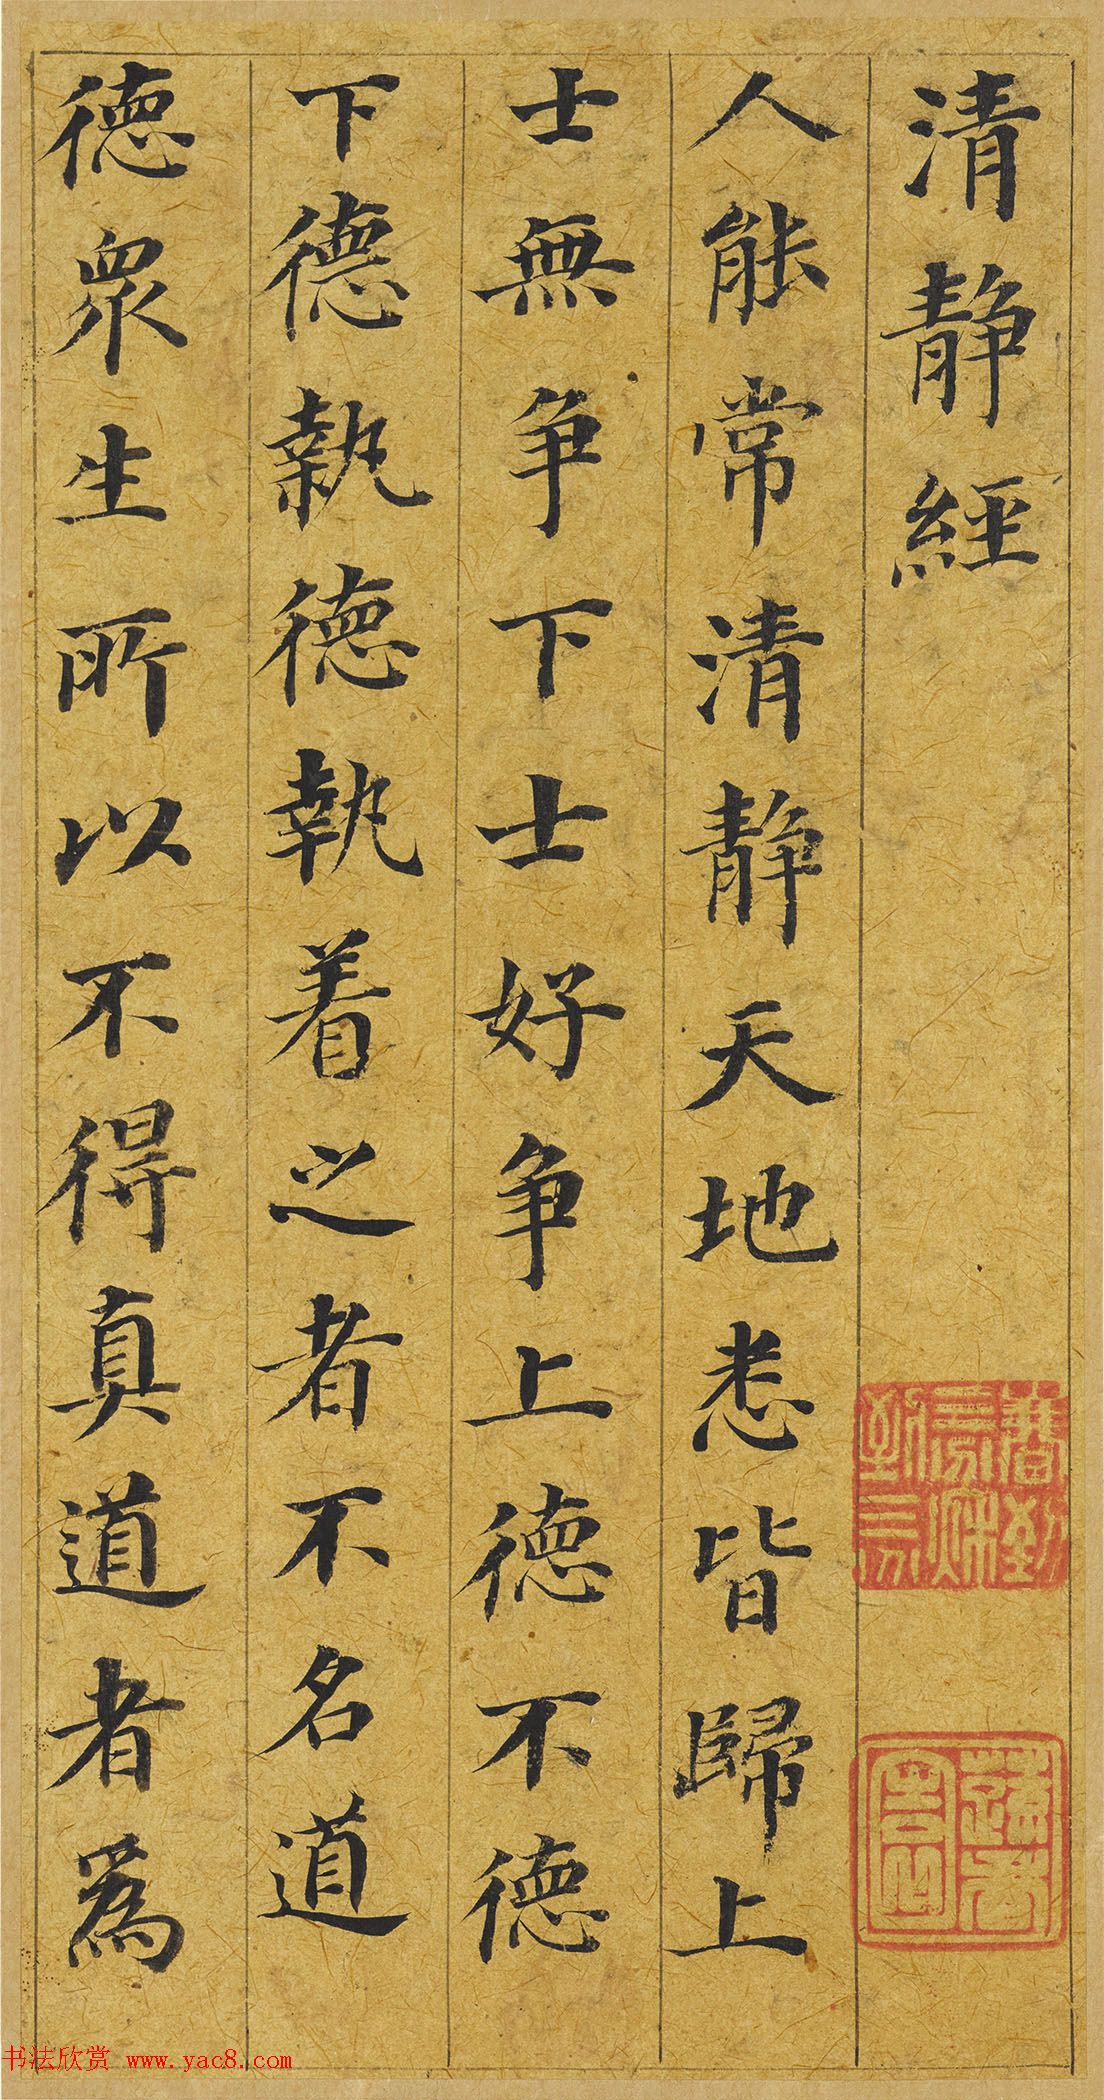 清静經
人能常清静天地悉皆歸上
士無争下士好争上德不德
下德執德執着之者不名道
德眾生所以不得真道者爲
书法欣赏 www.yac8.com